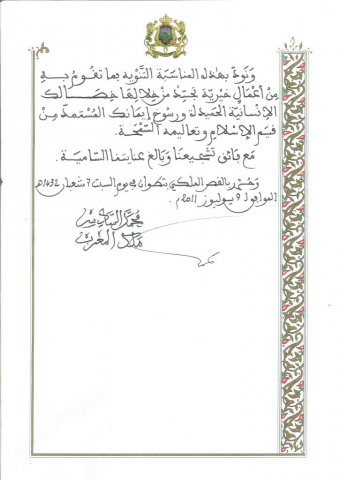 ونود بهذه المناسبة التنويه بما تقوم به
من أعمال خيرية تجسد من خلالها خصالك
الإنسانية الحميدة ورسوخ إيمانك المستمد من
قيم الإسلام وتعاليمه السمحة.
مع فائق تشجيعنا وبالغ عنايتنا السامية.
وحرر بالقصر الملكي بتطوان في يوم السبت 7 شعبان 1432هـ
الموافق ل 9 يوليوز 2011م.
محمد السادس
ملك المغرب